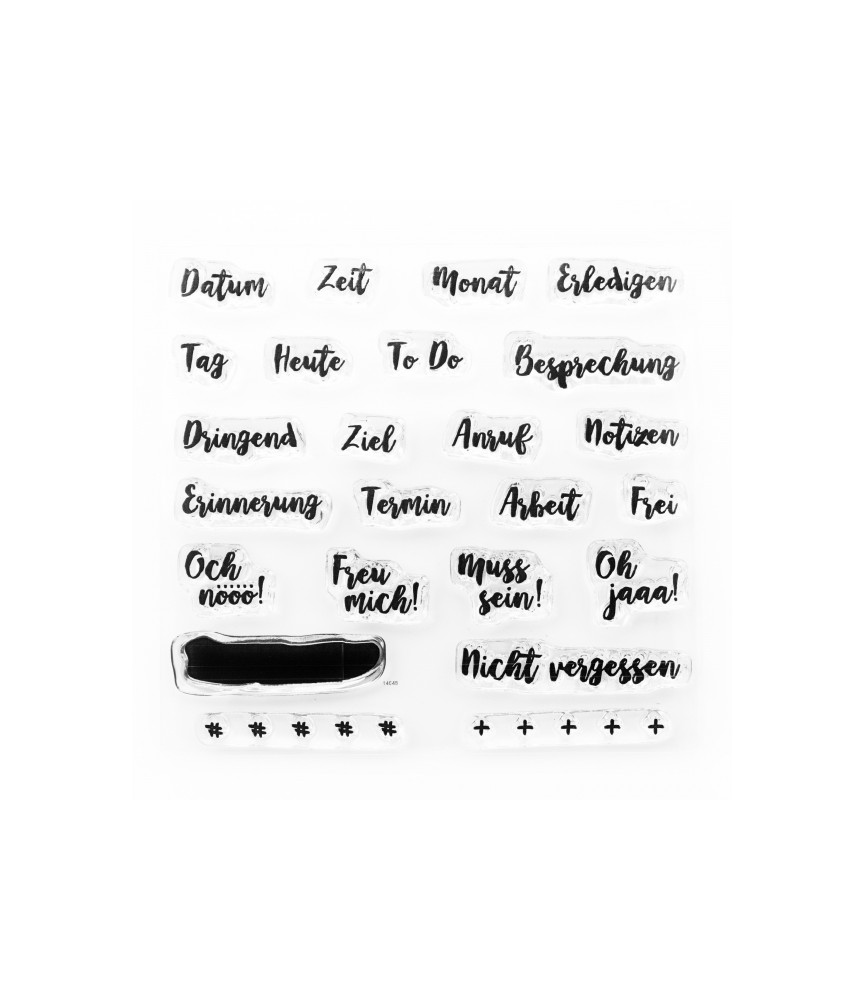 Datum Zeit Monat Erledigen
Tag Heute To Do Besprechung
Dringend Ziel Anruf Notizen
Erinnerung Termin Arbeit Frei
Och Freu Muss Oh
nööö! mich! sein! jaaa!
Nicht vergessen
# # # # # + + + + +